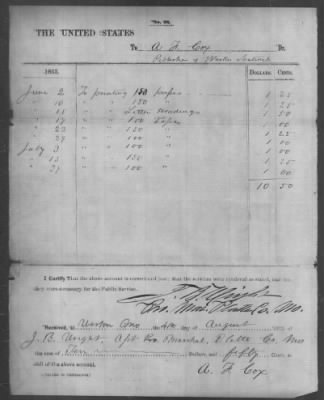 [No. 22.]
THE UNITED STATES
To A. F. Cox Dr.
Publisher of Weston Sentinel
1863. DOLLARS. CENTS.
June 2 To printing 150 passes 1 25
" 10 " 150 " 1 25
" 11 " Letter Headings 1 50
" 17 " 100 Passes 1 00
" 22 " 150 " 1 25
" 27 " 100 " 1 00
July 3 " 100 " 1 00
" 13 " 150 " 1 25
" 21 " 100 " 1 00
10 50
I CERTIFY That the above account is correct and just; that the services were rendered as stated, and that they were necessary for the Public Service.
Pro. Mar. Platte Co. Mo.
Received, at Weston Mo. the 4th of August 1863, of
J. B. Wright, Asst Pro. Marshal, Platte Co. Mo
the sum of Ten Dollars, and fifty Cents, in
full of the above account.
A. F. Cox
(SIGNED IN DUPLICATE.)